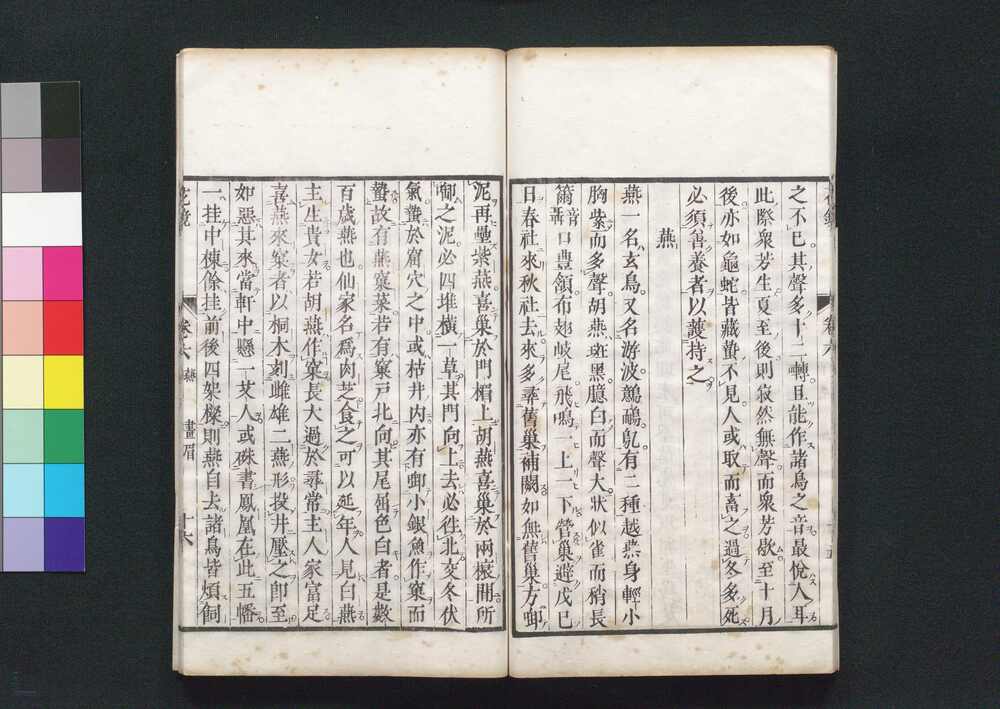 之不已其聲多十二囀且能作諸鳥之音最悅人耳
此際衆芳生夏至後則寂然無聲而衆芳歇至十月
後亦如龜蛇皆藏蟄不見人或取而畜之過冬多死
必須善養者以護持之
燕
燕一名玄鳥又名游波鷾鴯鳦有二種越燕身輕小
胸紫而多聲胡燕斑黑臆白而聲大狀似雀而稍長
籋音聶口豐頷布翅岐尾飛鳴一上一下營巢避戊己
日春社來秋社去來多尋舊巢補闕如無舊巢方啣
泥再壘紫燕喜巢於門楣上胡燕喜巢於兩榱間所
啣之泥必四堆橫一草其門向上去必往北交冬伏
氣蟄於窟穴之中或枯井內亦有啣小銀魚作窠而
蟄故有燕窠菜若有窠戶北向其尾屈色白者是數
百歲燕也仙家名爲肉芝食之可以延年人見白燕
主生貴女若胡燕作窠長大過於尋常主人家富足
喜燕來窠者以桐木刻雌雄二燕形投井壓之卽至
如惡其來當軒中懸一艾人或硃書鳳凰在此五幡
一挂中棟餘挂前後四架檪則燕自去諸鳥皆煩飼
花鏡 卷六 燕 畫眉 十六